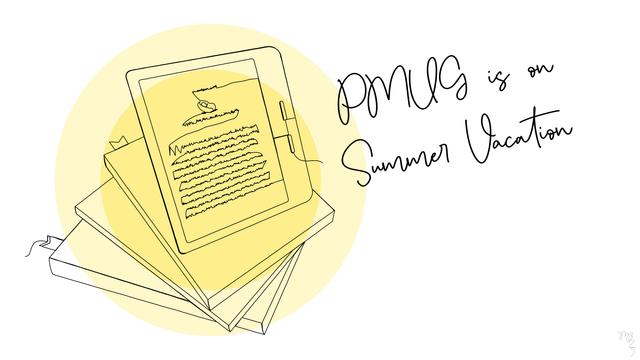 PMUG is on
Summer Vacation